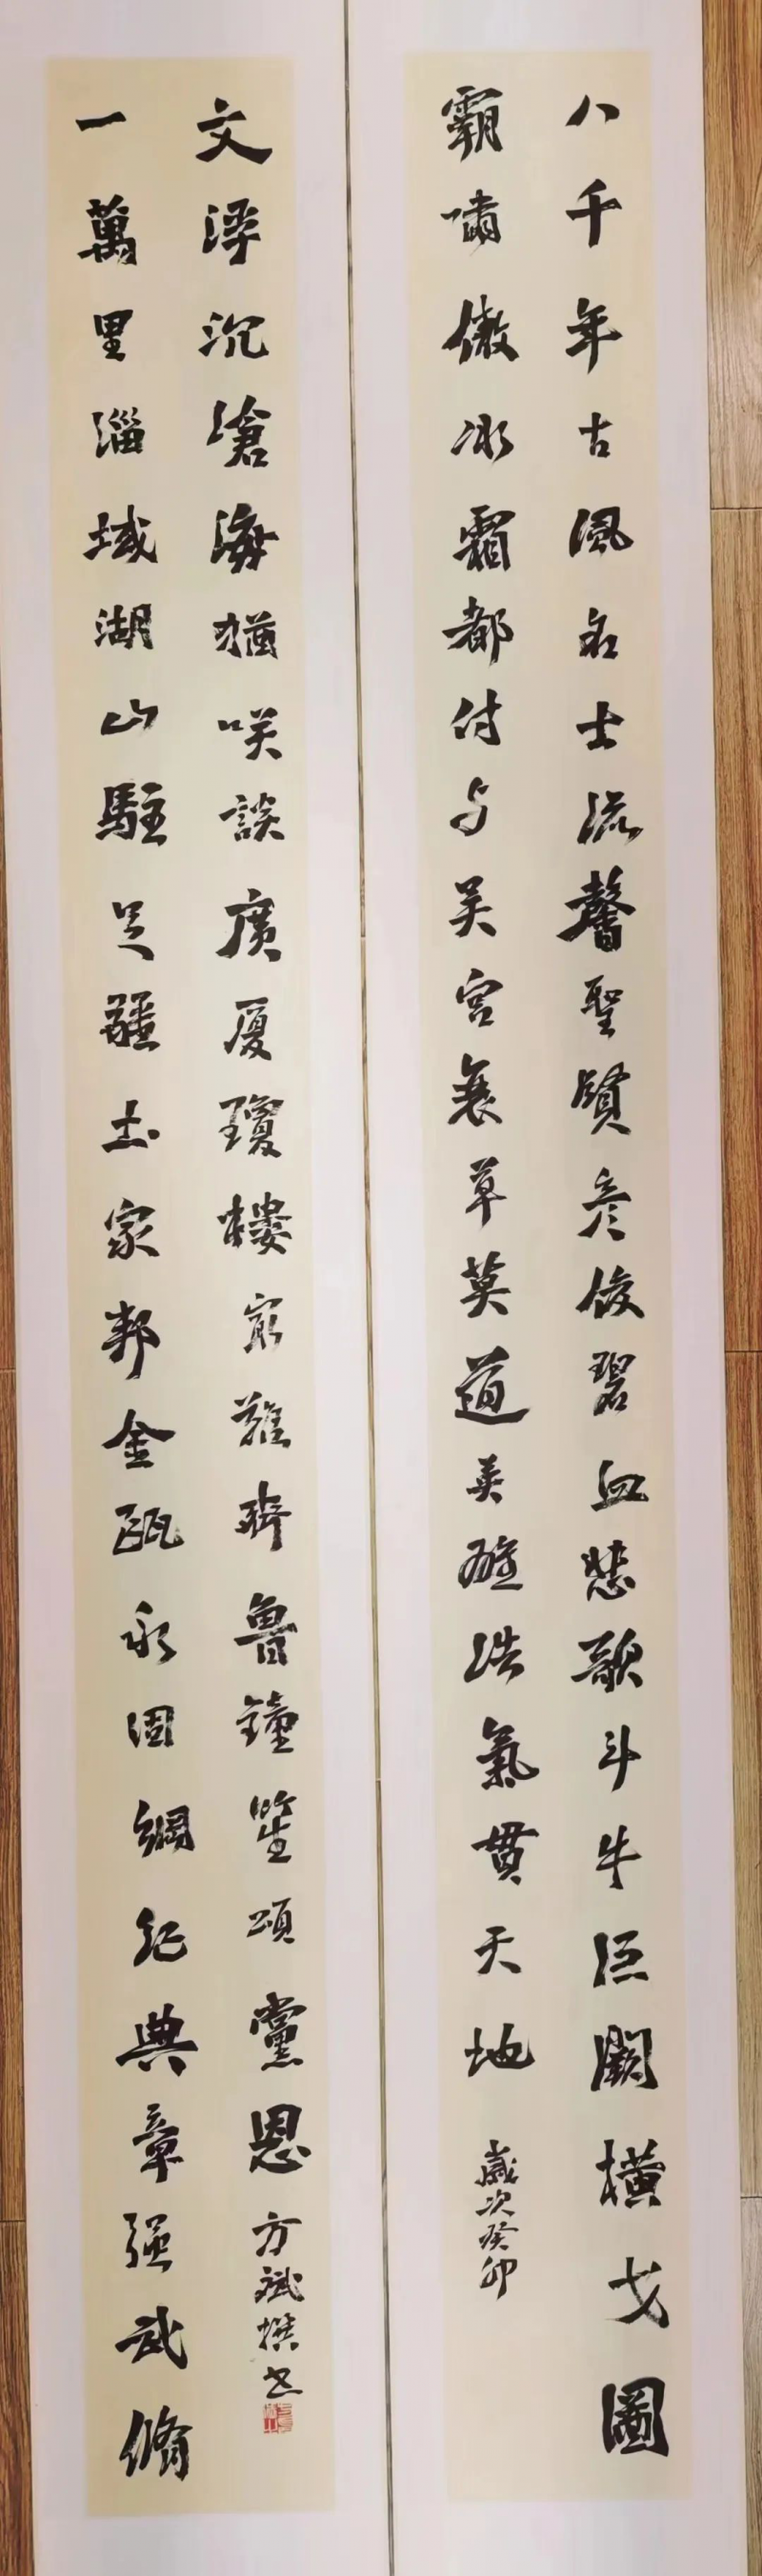 八千年古風名士流馨聖賢彥俊碧血悲歌斗牛闕橫戈圖
霸嘯傲冰霜都付与吴宮衰草莫道英雄浩氣貫天地
歲次癸卯
一萬里淄域湖山駐足疆土家邦金甌永固綱紀典章強武脩
文浮沉滄海猶咲談廣厦瓊樓㝡難齊魯鐘笙頌黨恩
方斌撰书